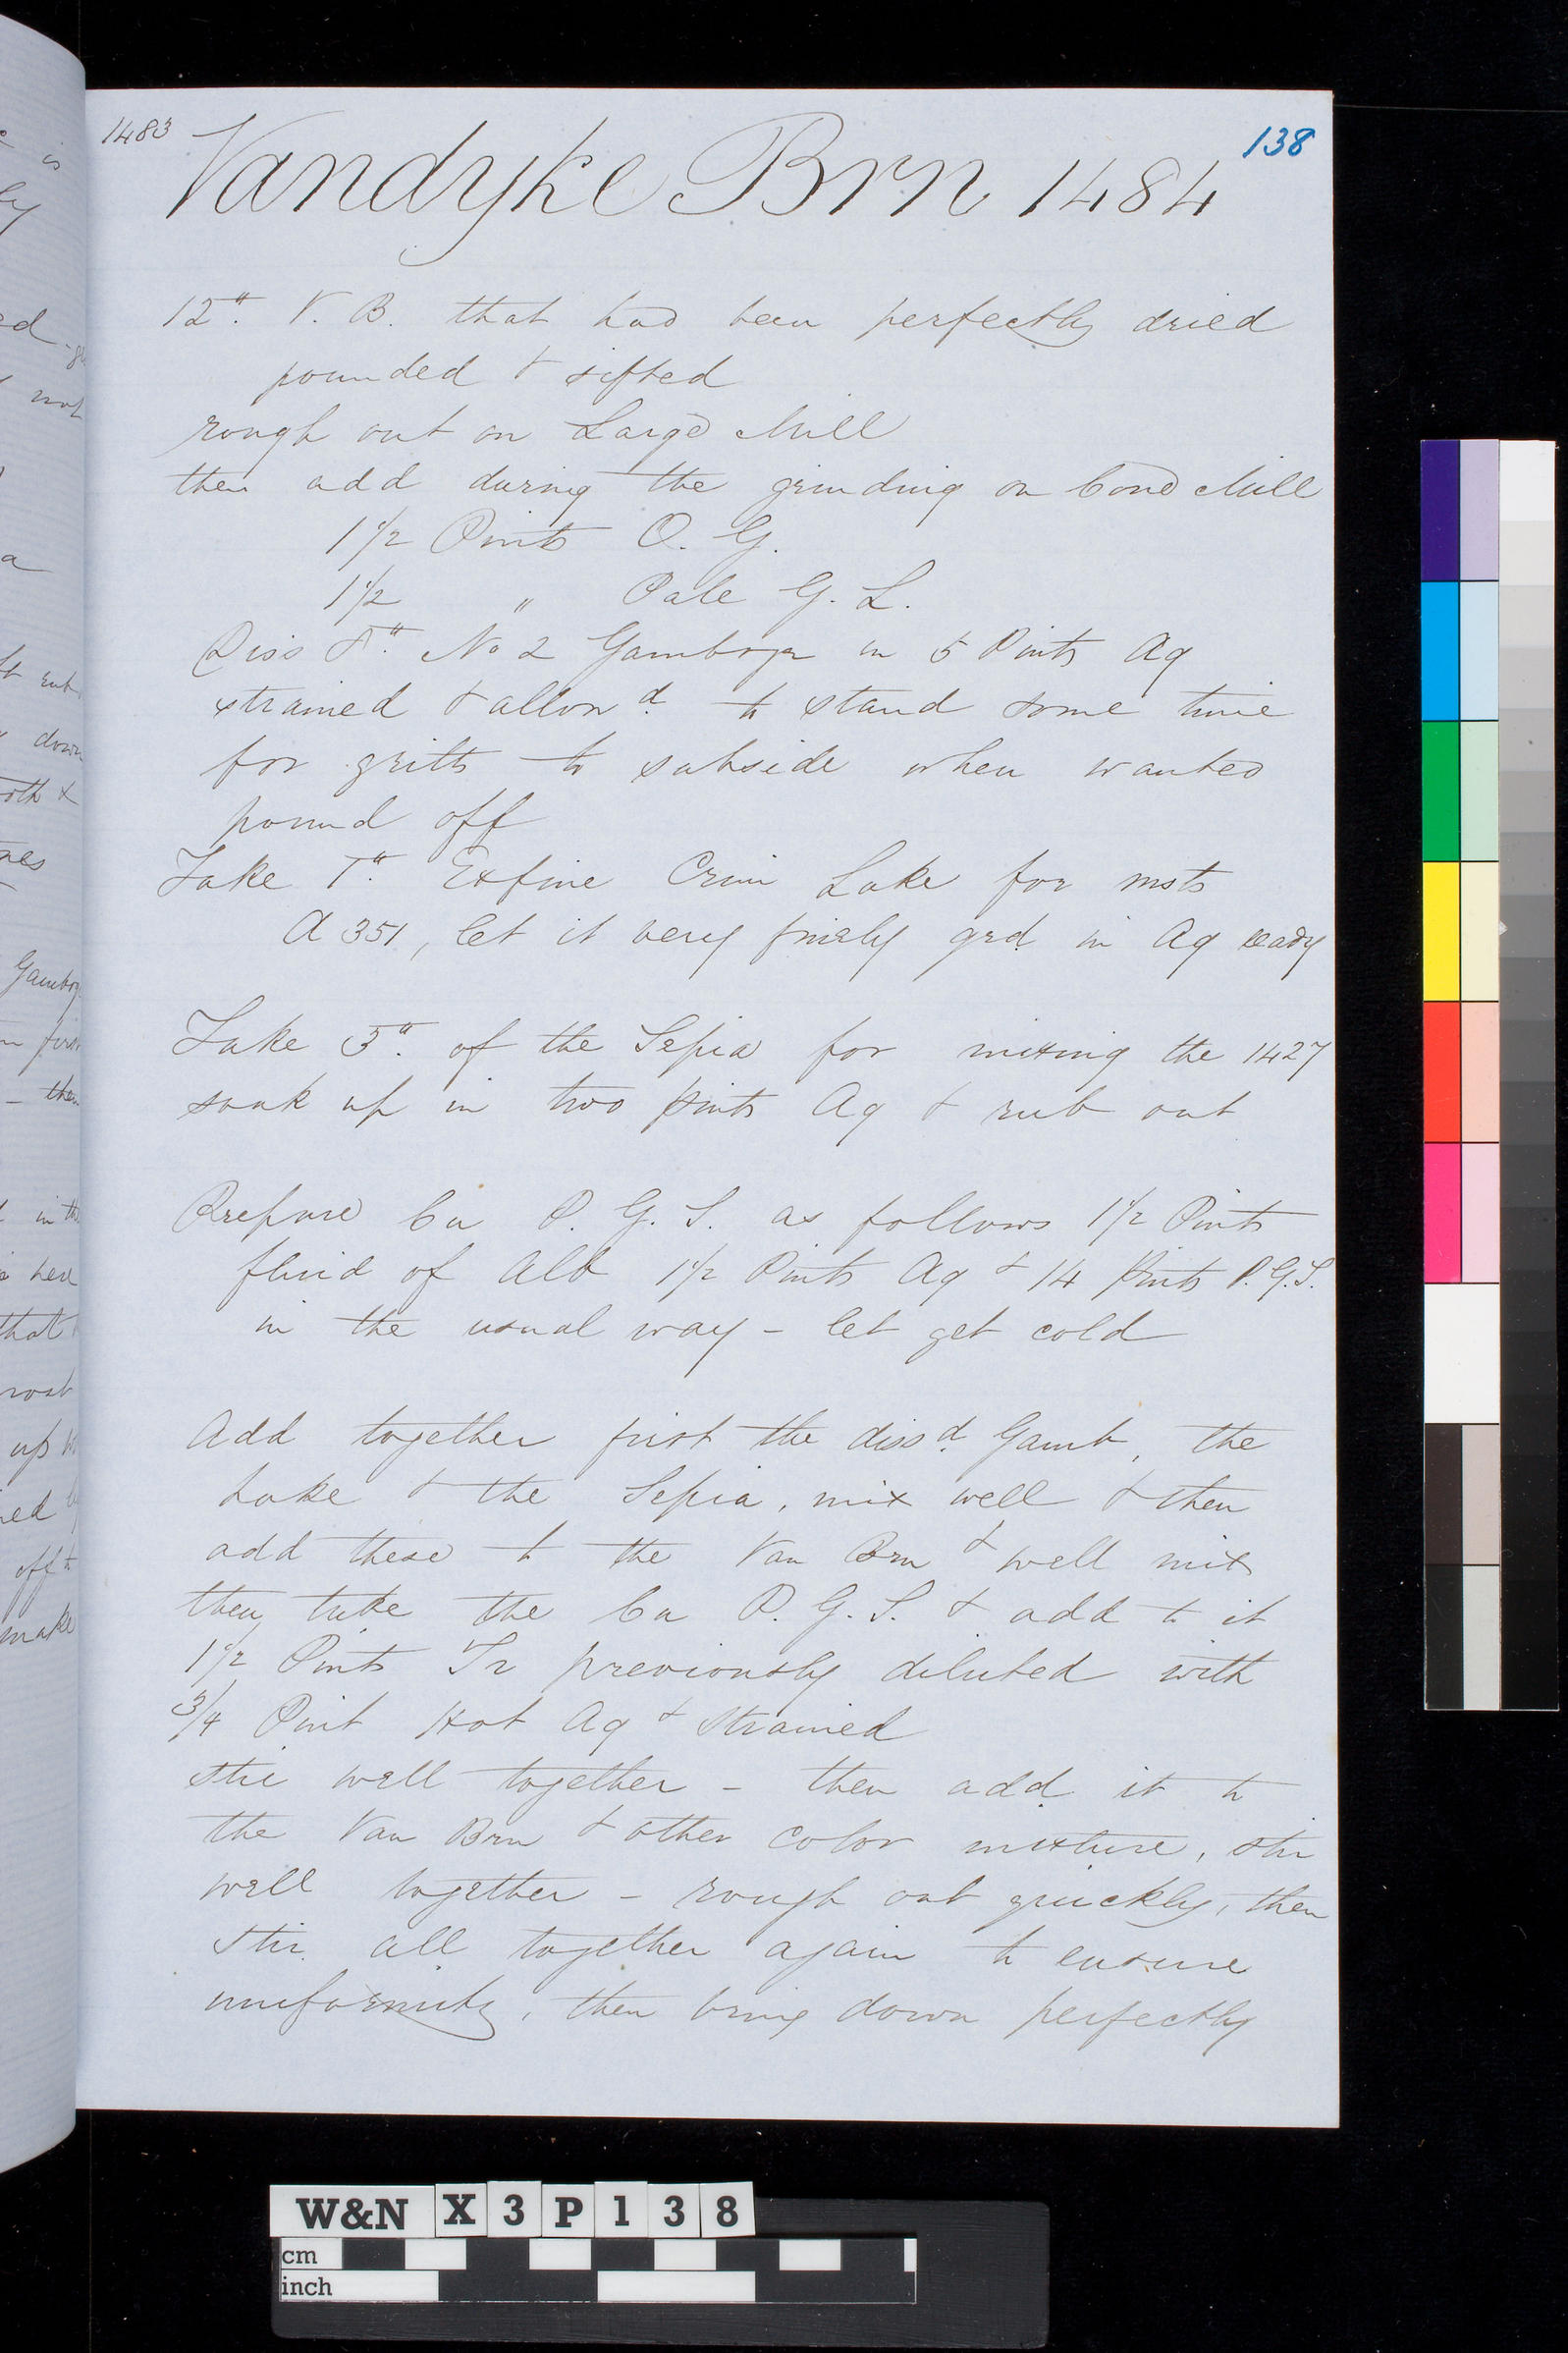 1483
138
Vandyke Brn 1484
12". V. B. that had been perfectly dried
pounded & sifted
rough out on Large Mill
then add during the grinding on Cone Mill
1 1/2 Pints O. G.
1 1/2 " Pale G. L.
Diss No 2 Gamboge in 5 Pints Aq
strained & allowd. to stand some time
for gritts to subside when wanted
pound off
Take 1". Exfine Crim Lake for msts
A 351, let it very finely grd. in Aq ready
Take 3". of the Sepia for mixing the 1427
soak up in two pints Aq & rub out
Prepare Ca P. G. S. as follows 1 1/2 Pints
fluid of Alb 1 1/2 Pints Aq & 14 Pints P. G. S.
in the usual way - let get cold
Add together first the dissd. Gamb, the
Lake & the Sepia, mix well & then
add these to the Van Brn & well mix
then take the Ca P. G. S. & add to it
1 1/2 Pints Tr previously diluted with
3/4 Pint Hot Aq & strained
stir well together - then add it to
the Van Brn & other color mixture, stir
well together - rough out quickly, then
stir all together again to ensure
uniformity, then bring down perfectly
W&N X 3 P 1 3 8
cm
inch